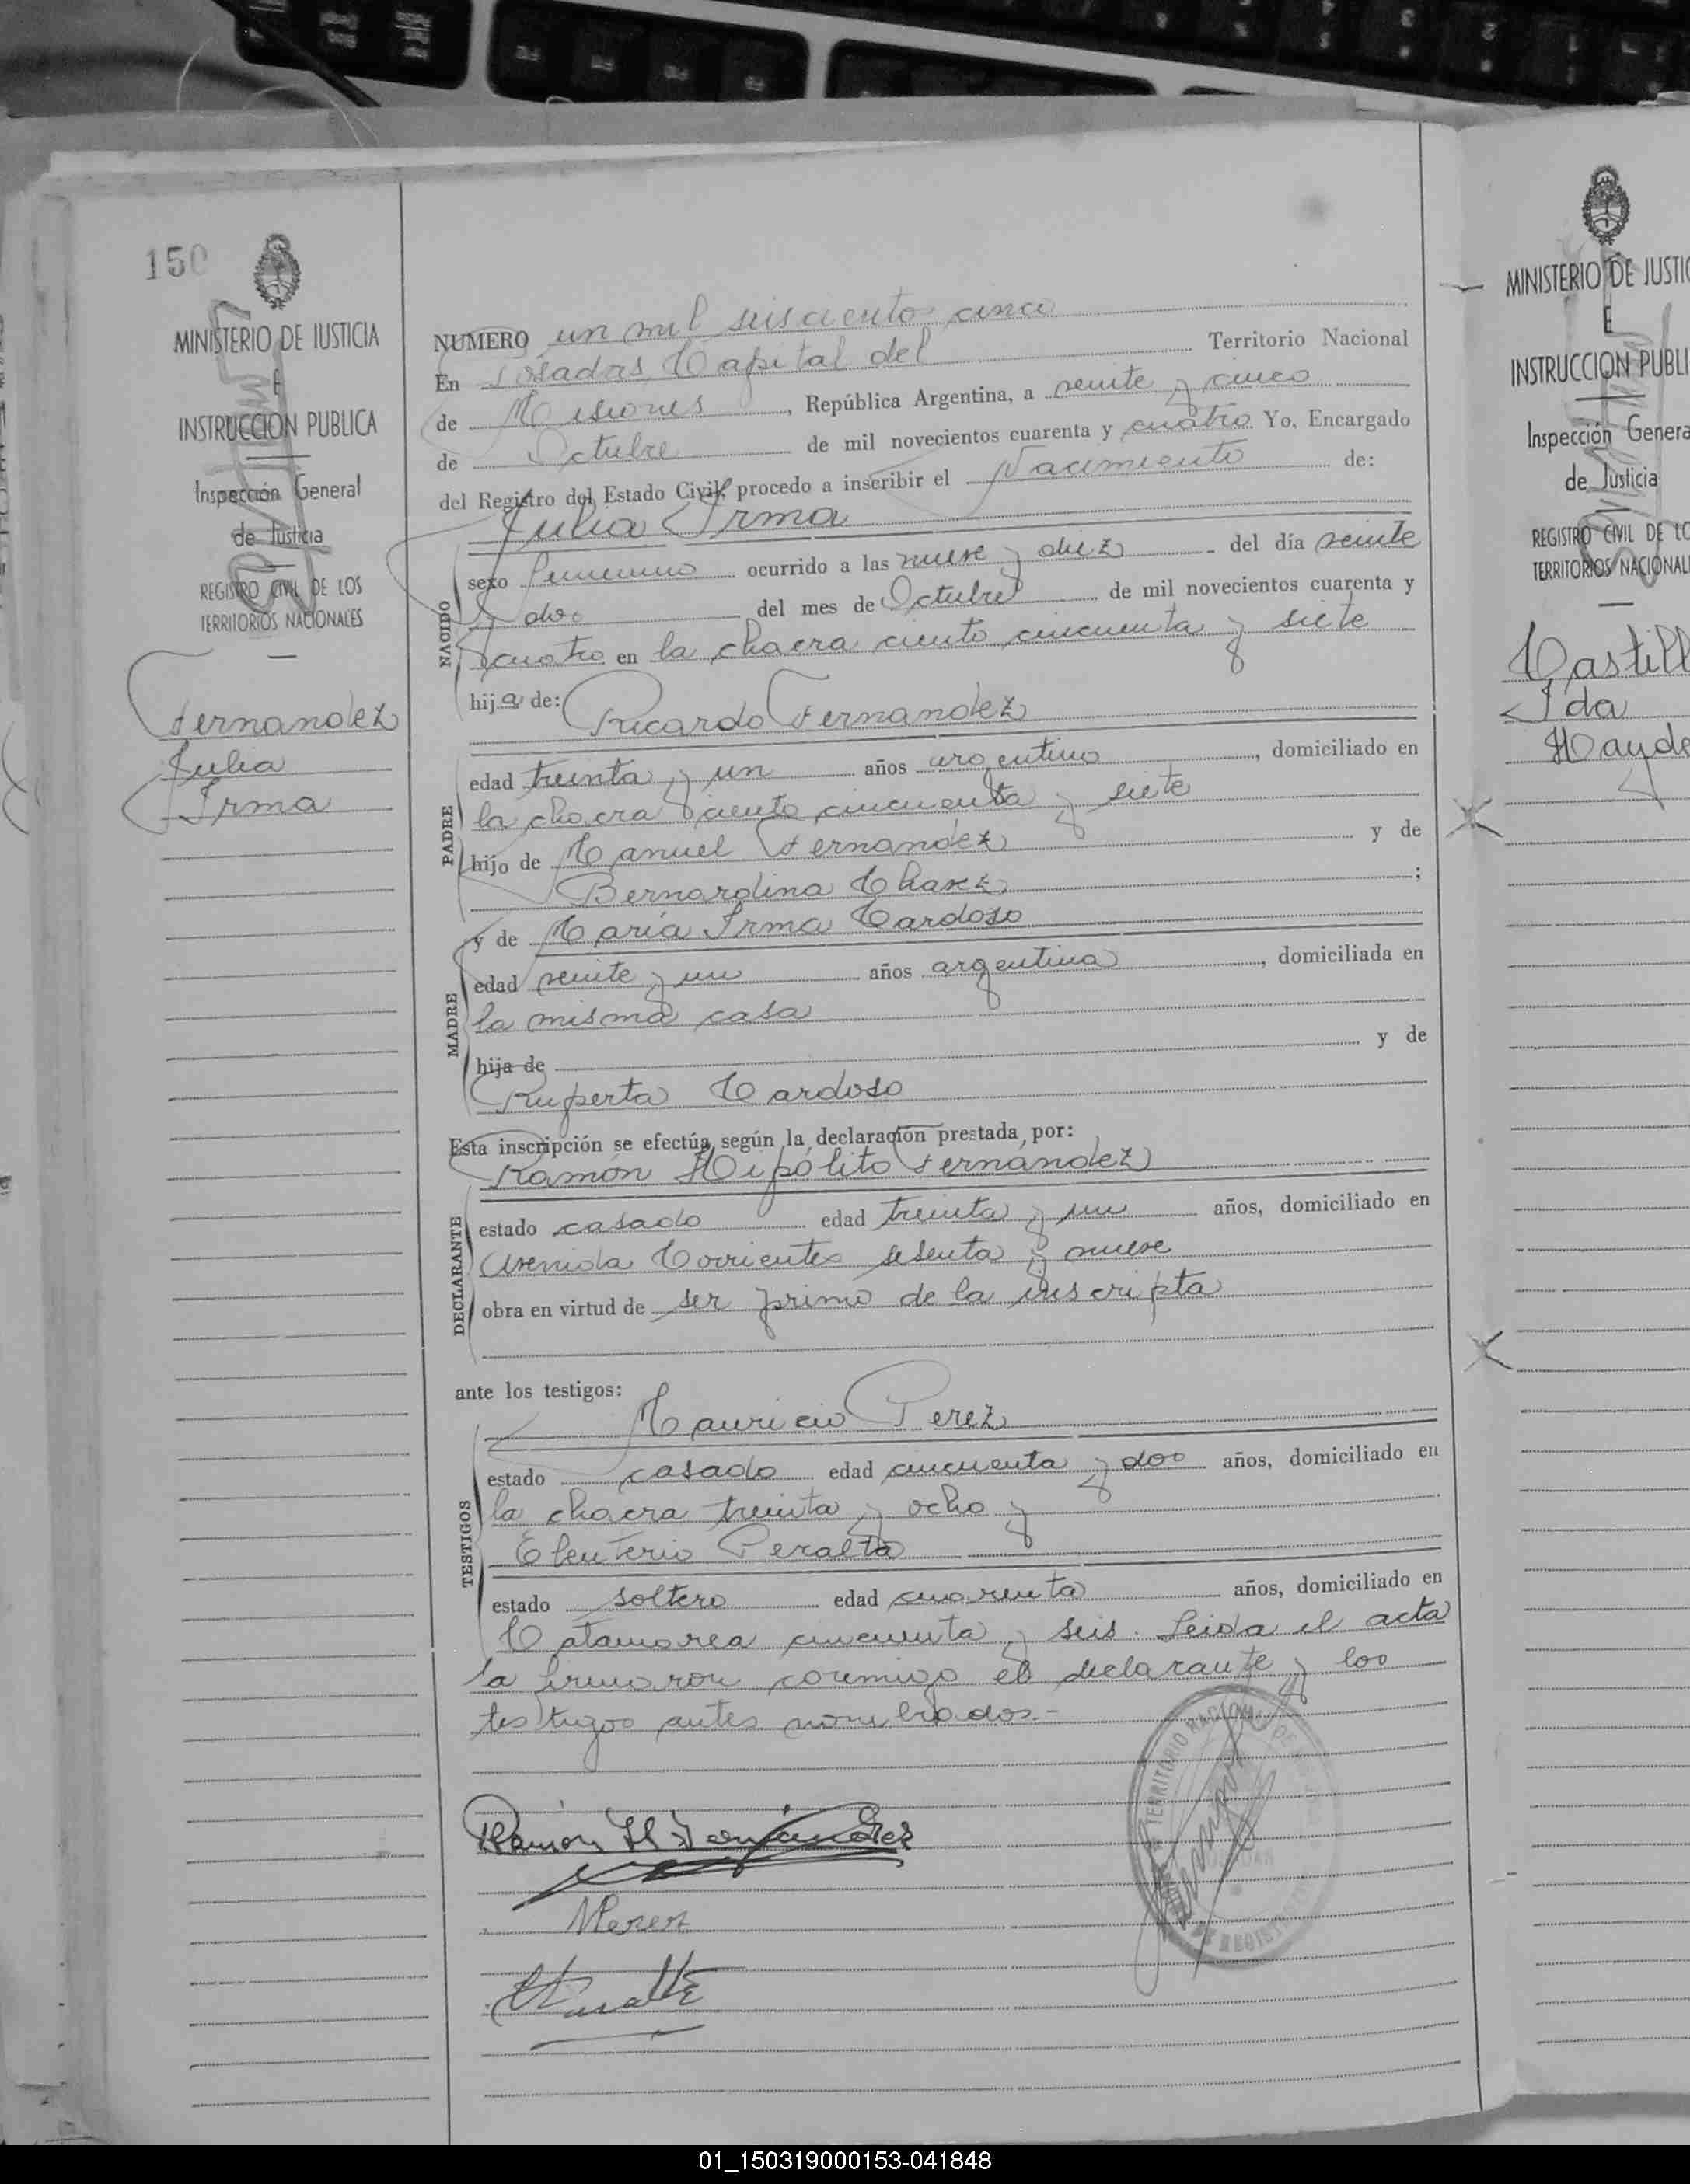 150
MINISTERIO DE JUSTICIA
E
INSTRUCCION PUBLICA
Inspección General
de Justicia
REGISTRO CIVIL DE LOS
TERRITORIOS NACIONALES
Fernandez
Julia
Irma
NUMERO un mil seiscientos cinco
En Posadas, Capital del Territorio Nacional
de Misiones, República Argentina, a veinte y cinco
de Octubre de mil novecientos cuarenta y cuatro Yo, Encargado
del Registro del Estado Civil, procedo a inscribir el Nacimiento de:
Julia Irma
NACIDO
sexo femenino ocurrido a las nueve y diez del día veinte
y dos del mes de Octubre de mil novecientos cuarenta y
cuatro en la chacra ciento cincuenta y siete
hija de:
Ricardo Fernandez
PADRE
edad treinta y un años argentino, domiciliado en
la chacra ciento cincuenta y siete
hijo de Manuel Fernandez y de
Bernardina Chavez;
y de María Irma Cardoso
MADRE
edad veinte y un años argentina, domiciliada en
la misma casa
hija de y de
Ruperta Cardoso
Esta inscripción se efectúa según la declaración prestada por:
Ramón Hipólito Fernández
DECLARANTE
estado casado edad treinta y un años, domiciliado en
Avenida Corrientes sesenta y nueve
obra en virtud de ser primo de la inscripta
ante los testigos:
Mauricio Perez
TESTIGOS
estado casado edad cincuenta y dos años, domiciliado en
la chacra treinta y ocho y
Eleuterio Peralta
estado soltero edad cuarenta años, domiciliado en
Catamarca cincuenta y seis. Leida el acta
la firmaron conmigo el declarante y los
testigos antes nombrados.-
Ramón H Fernández
MPerez
EPeralta
TERRITORIO NACIONAL DE
MINISTERIO DE JUSTIC
E
INSTRUCCION PUBLI
Inspección Genera
de Justicia
REGISTRO CIVIL DE LO
TERRITORIOS NACIONAL
Castill
Ida
Hayde
01_150319000153-041848